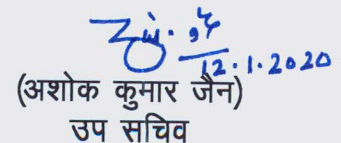 12.1.2020
(अशोक कुमार जैन)
उप सचिव